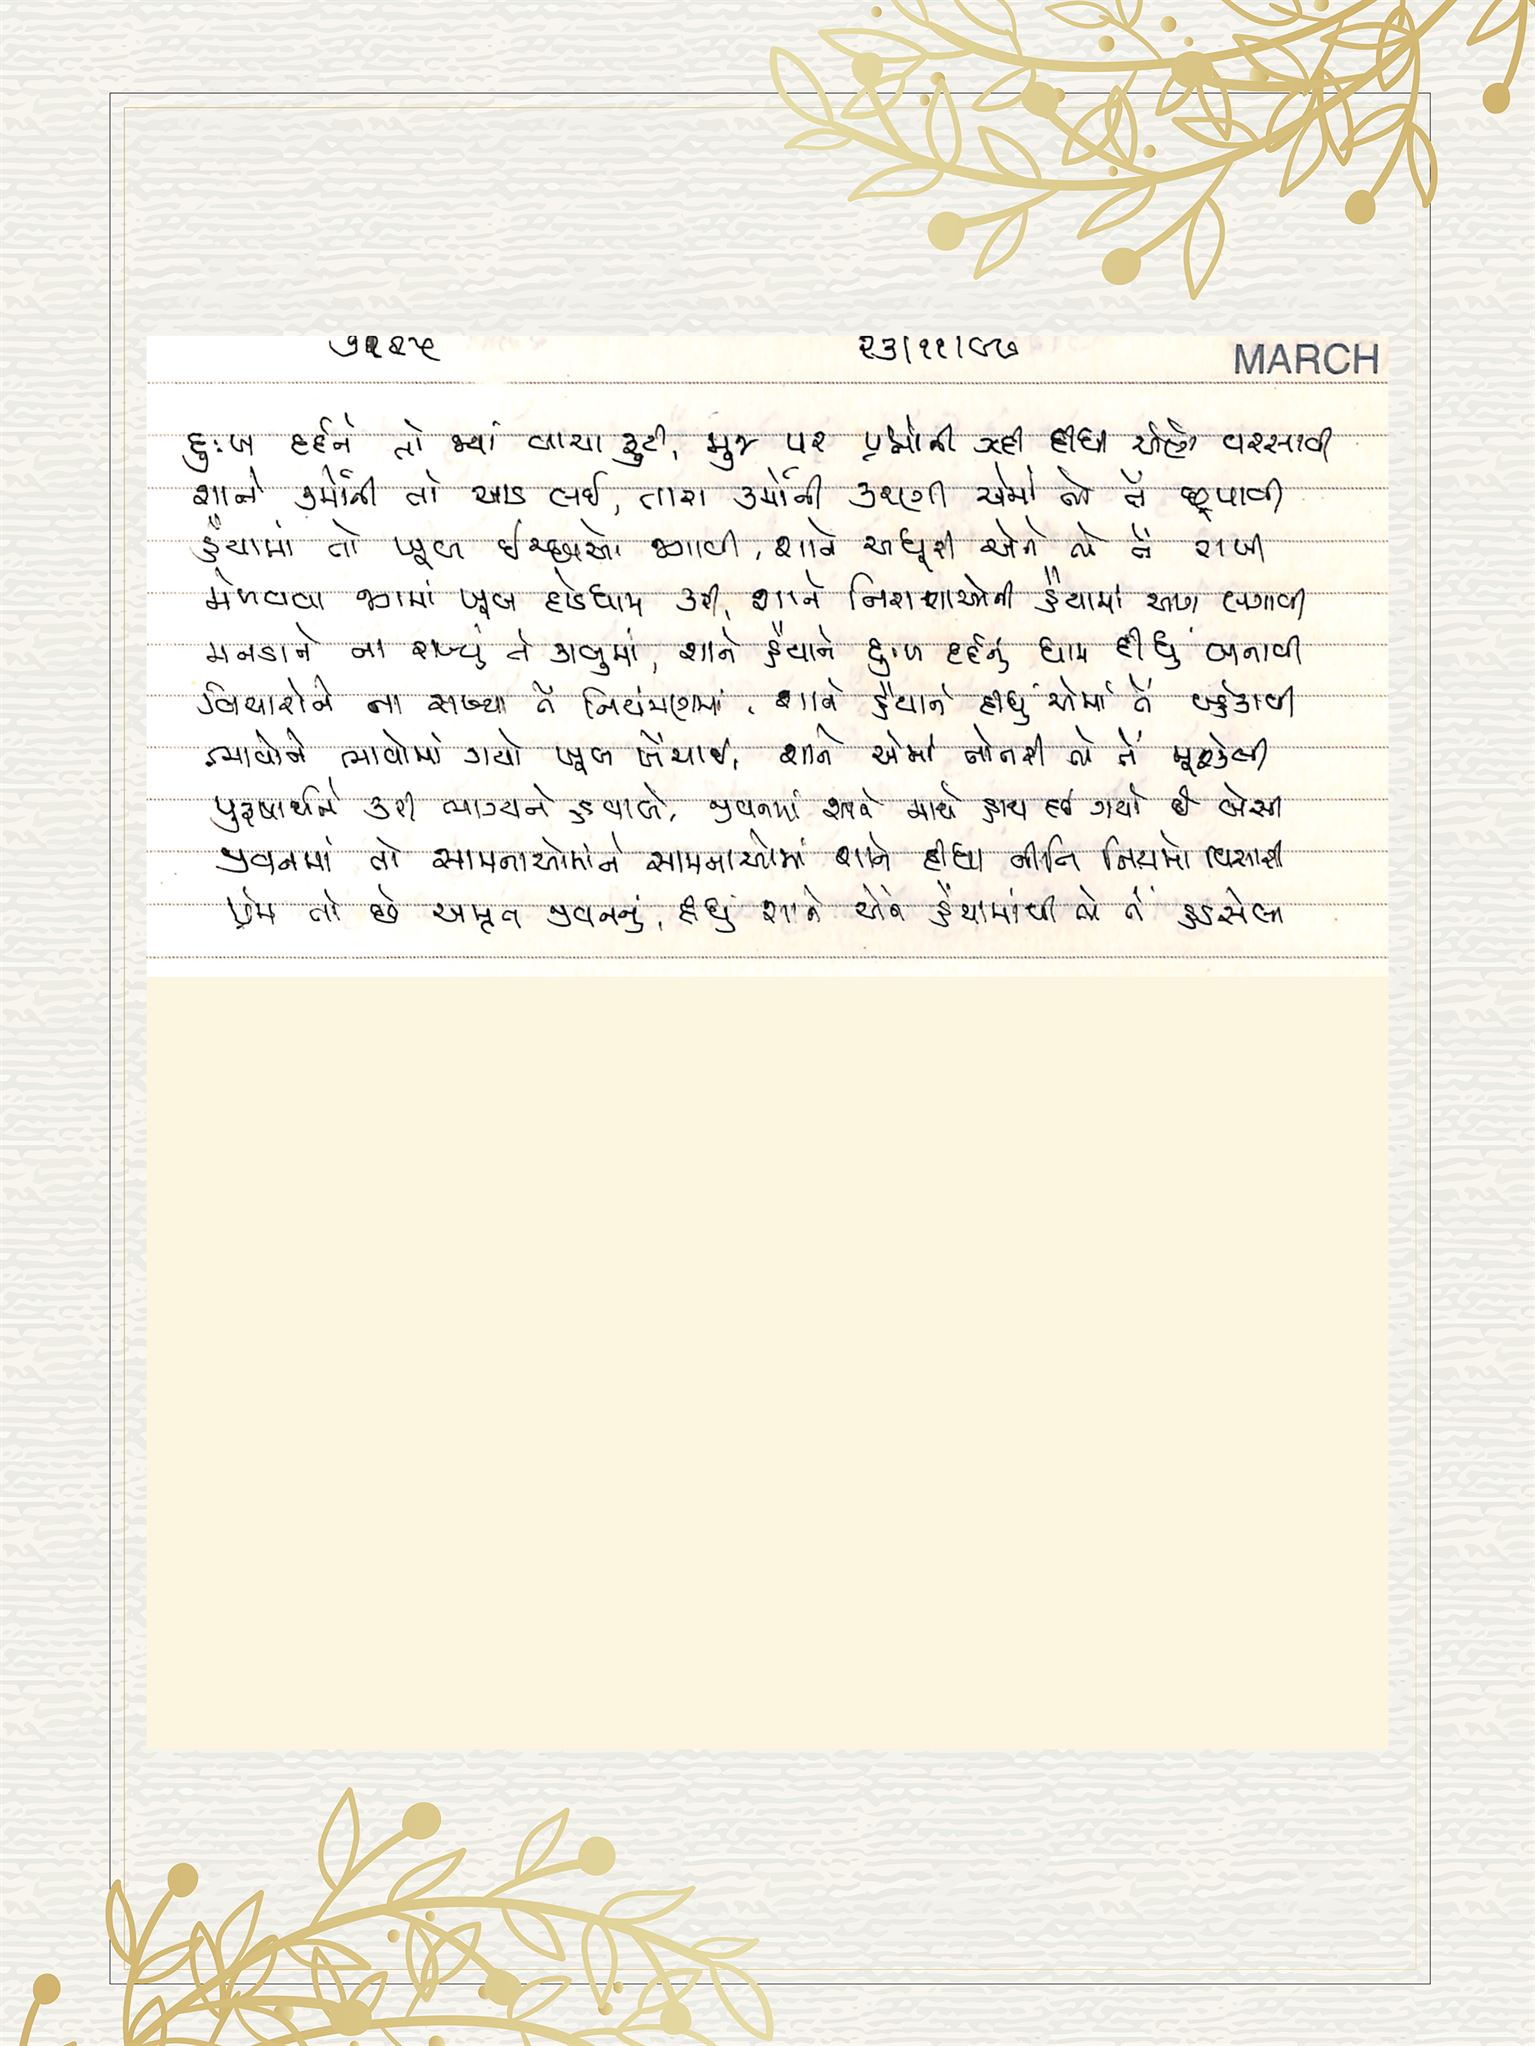 ૭૨૨૫ ૨૩/૧૧/૯૭ MARCH
દુઃખ દર્દને તો જ્યાં વાચા ફુટી, મુજ પર પ્રશ્નોની ઝડી દીધી એણે વરસાવી
શાને કર્મોની તો આડ લઈ, તારા કર્મોની કરણી એમાં તો તેં છૂપાવી
હૈયામાં તો ખૂબ ઈચ્છાઓ જગાવી, શાને અધૂરી એને તો તેં રાખી
મેળવવા જગમાં ખૂબ દોડધામ કરી, શાને નિરાશાઓની હૈયામાં આગ લગાવી
મનડાને ના રાખ્યું તેં કાબુમાં, શાને હૈયાને દુઃખ દર્દનું ધામ દીધું બનાવી
વિચારોને ના રાખ્યા તેં નિયંત્રણમાં, શાને હૈયાને દીધું એમાં તેં બહેકાવી
ભાવોને ભાવોમાં ગયો ખૂબ ખેંચાઈ, શાને એમાં નોતરી તો તેં મૂશ્કેલી
પુરુષાર્થને કરી ભાગ્યને હવાલે, જીવનમાં શાને માથે હાથ દઈ ગયો છે બેસી
જીવનમાં તો સામનાઓમાંને સામનાઓમાં શાને દીધા નીતિ નિયમો વિસારી
પ્રેમ તો છે અમૃત જીવનનું, દીધું શાને એને હૈયામાંથી તો તેં હડસેલી